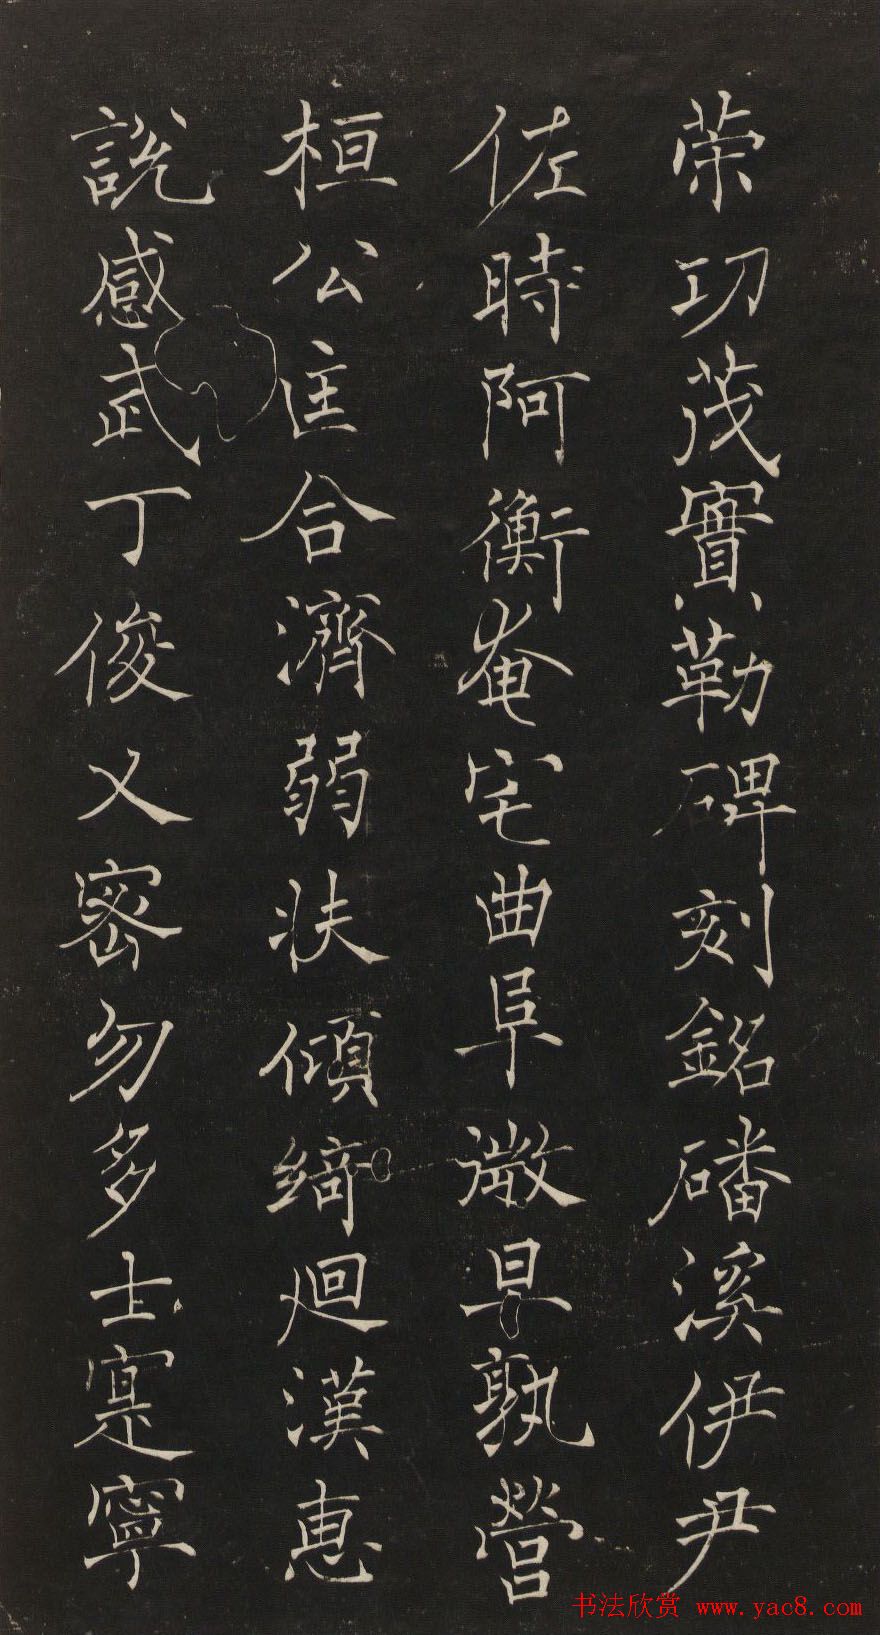 策功茂實勒碑刻銘磻溪伊尹
佐時阿衡奄宅曲阜微旦孰營
桓公匡合濟弱扶傾綺迴漢惠
說感武丁俊乂密勿多士寔寧
书法欣赏 www.yac8.com